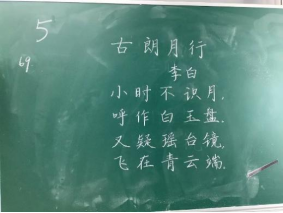 5
69
古朗月行
李白
小时不识月，
呼作白玉盘。
又疑瑶台镜，
飞在青云端。